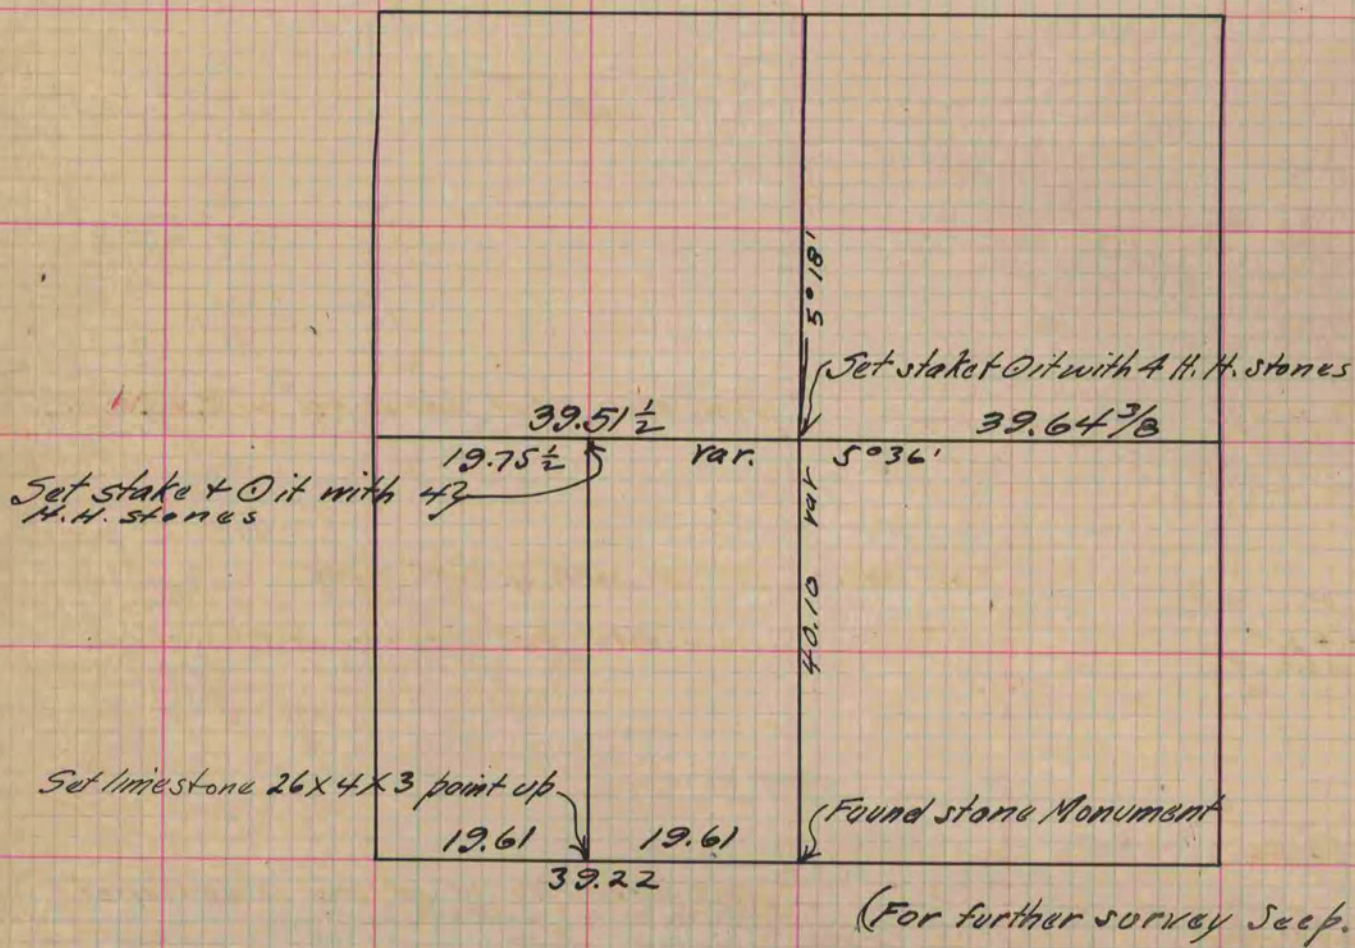 5° 18'
Set stake + ⊙ it with 4 H. H. stones
39.51 1/2
39.64 3/8
19.75 1/2
var.
5° 36'
Set stake + ⊙ it with 4
H.H. stones
var
40.10
Set limestone 26 X 4 X 3 point up
Found stone Monument
19.61
19.61
39.22
(For further survey See p.